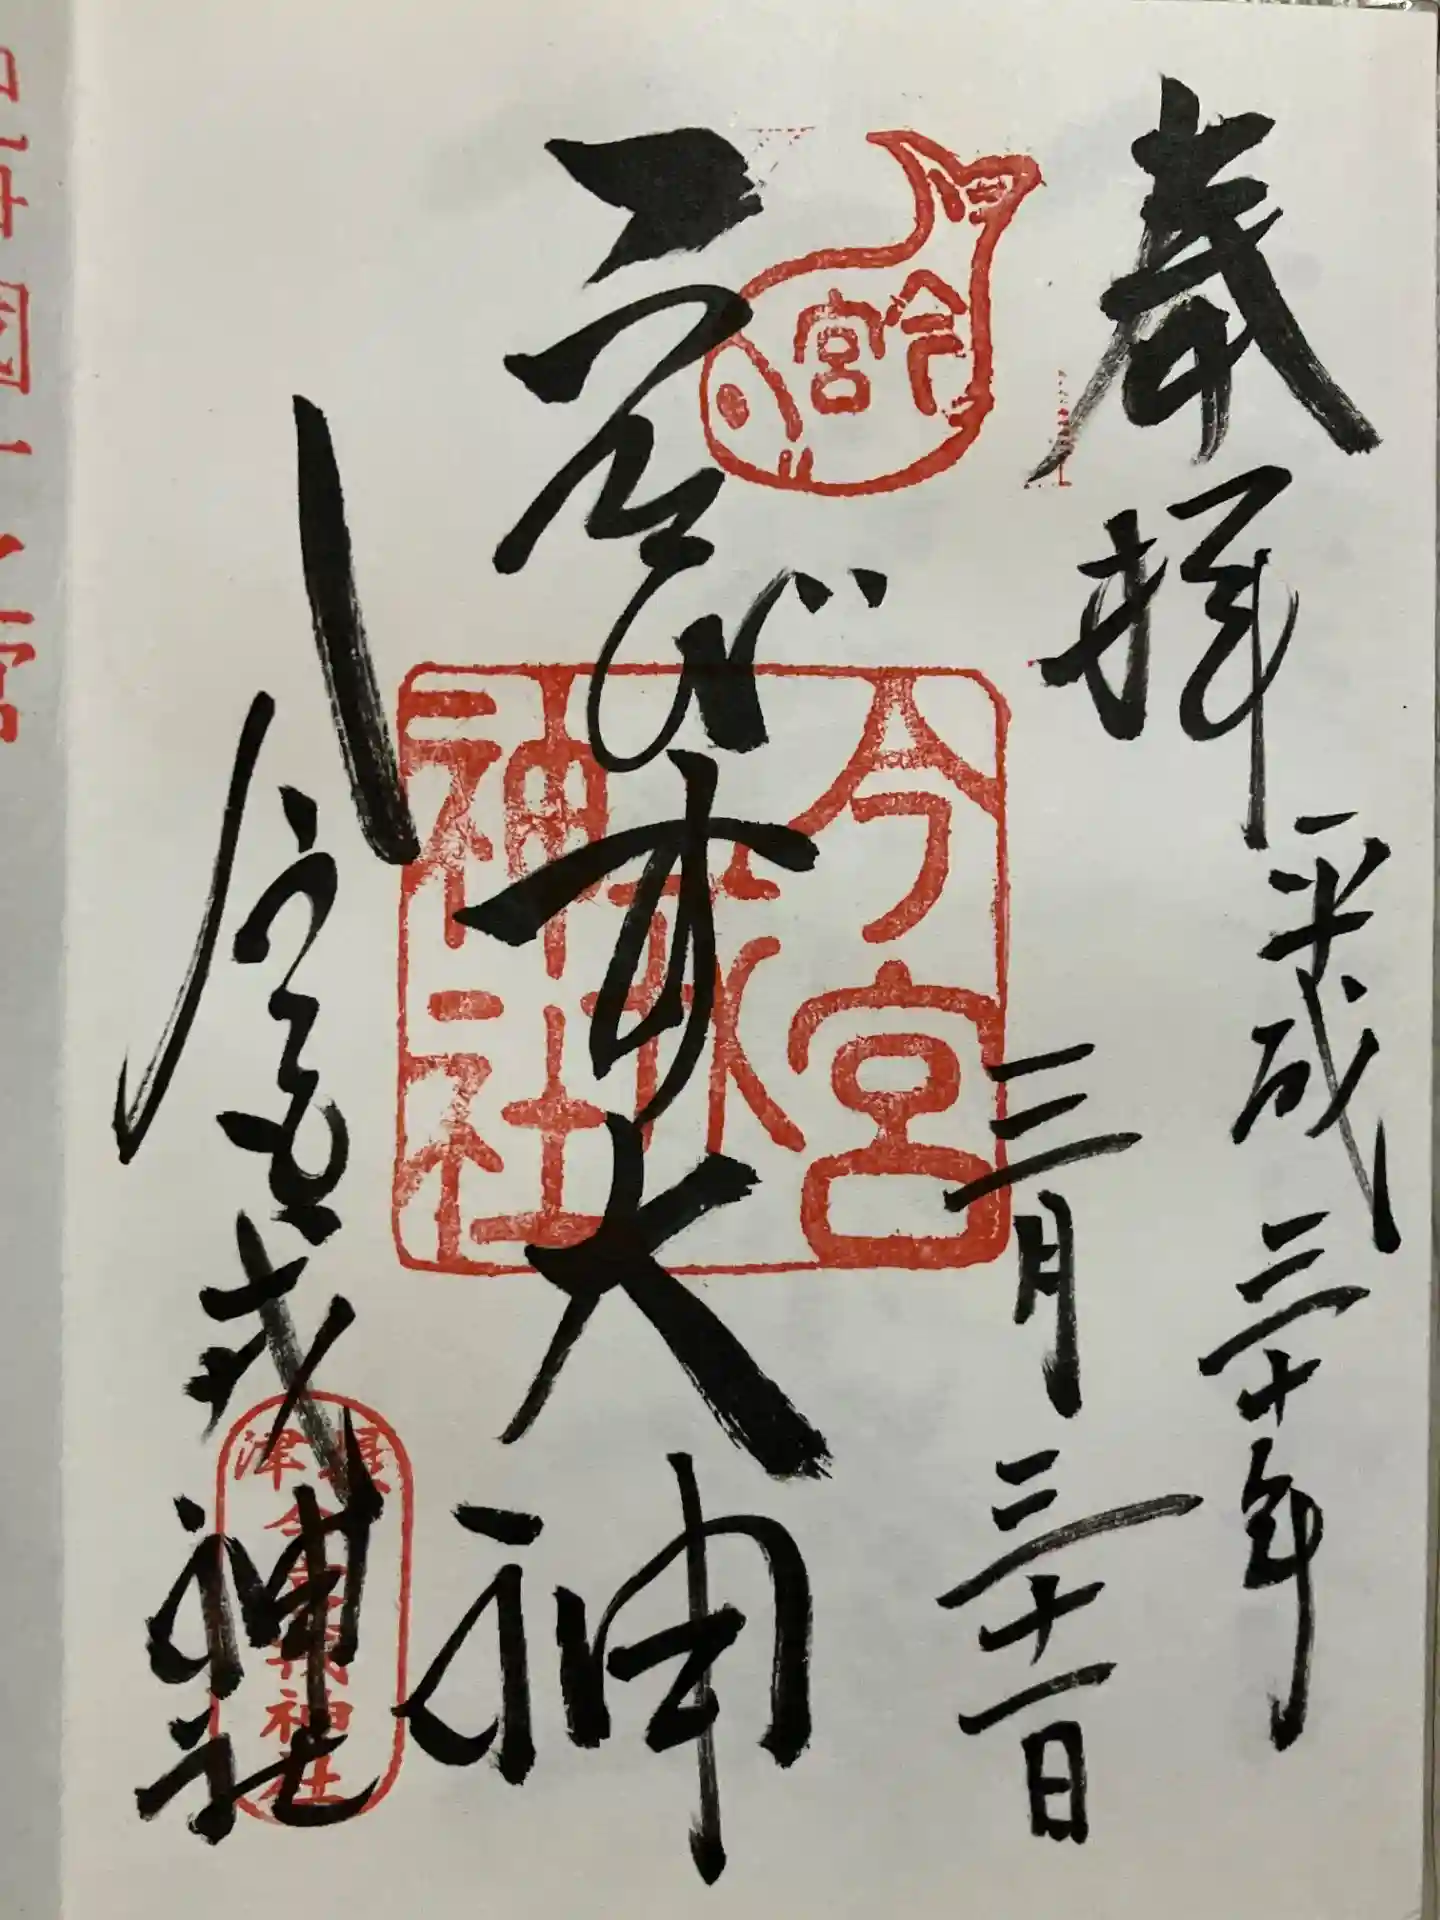 奉拝
平成三十年
三月三十一日
今宮
ゑびす大神
今宮戎神社
今宮戎神社
津
今宮戎神社